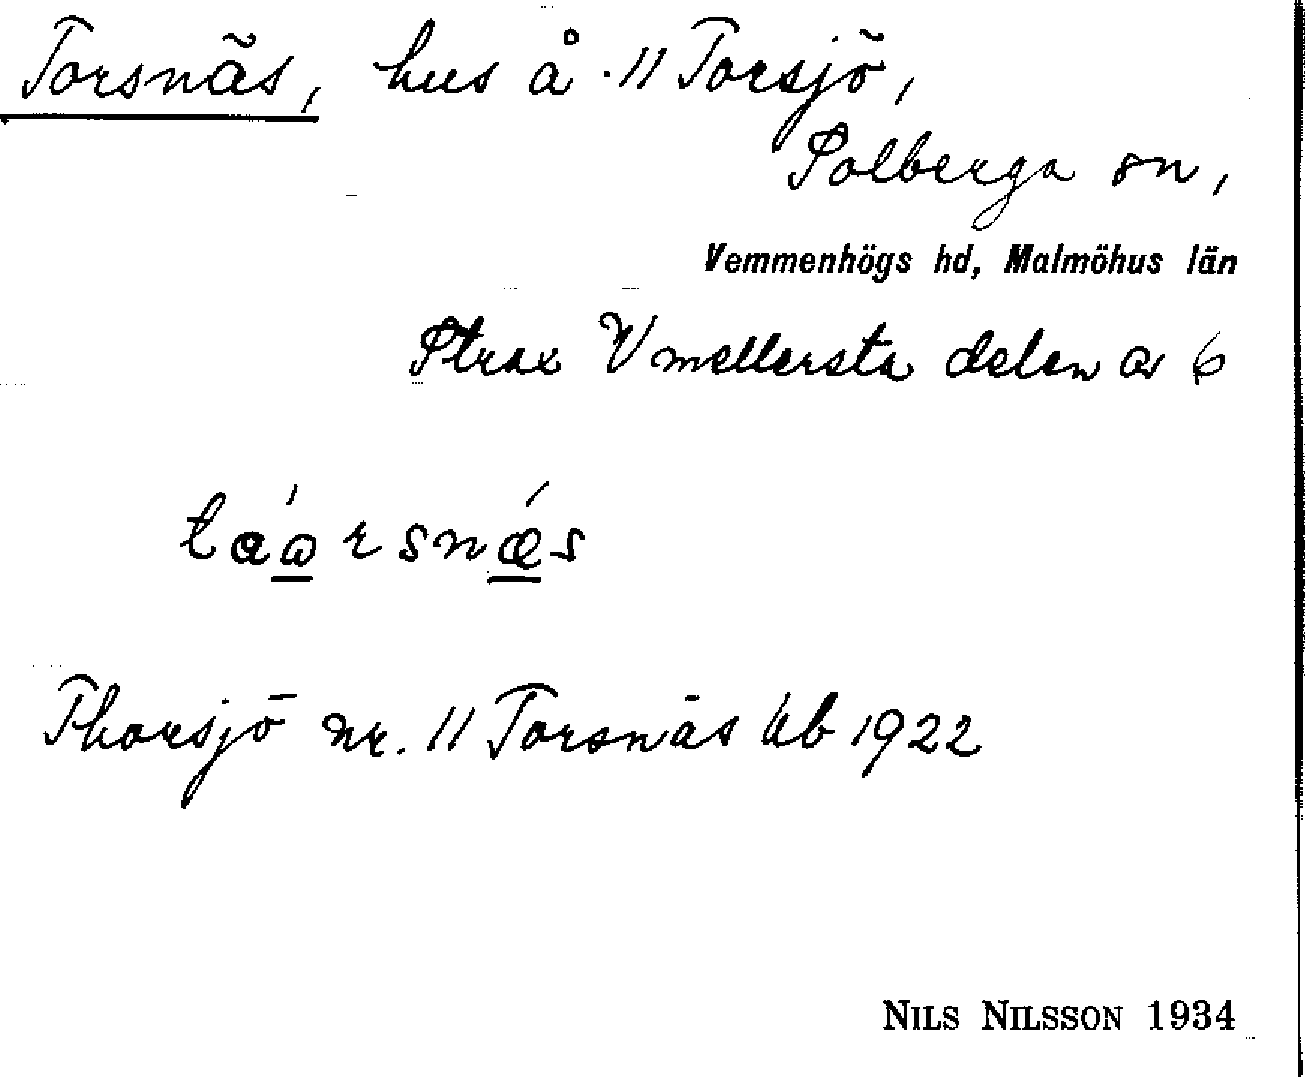 Torsnäs, hus å 11 Torsjö,
Solberga sn,
Vemmenhögs hd, Malmöhus län
Strax V mellersta delen av 6
Thorsjö nr. 11 Torsnäs Kb 1922
NILS NILSSON 1934